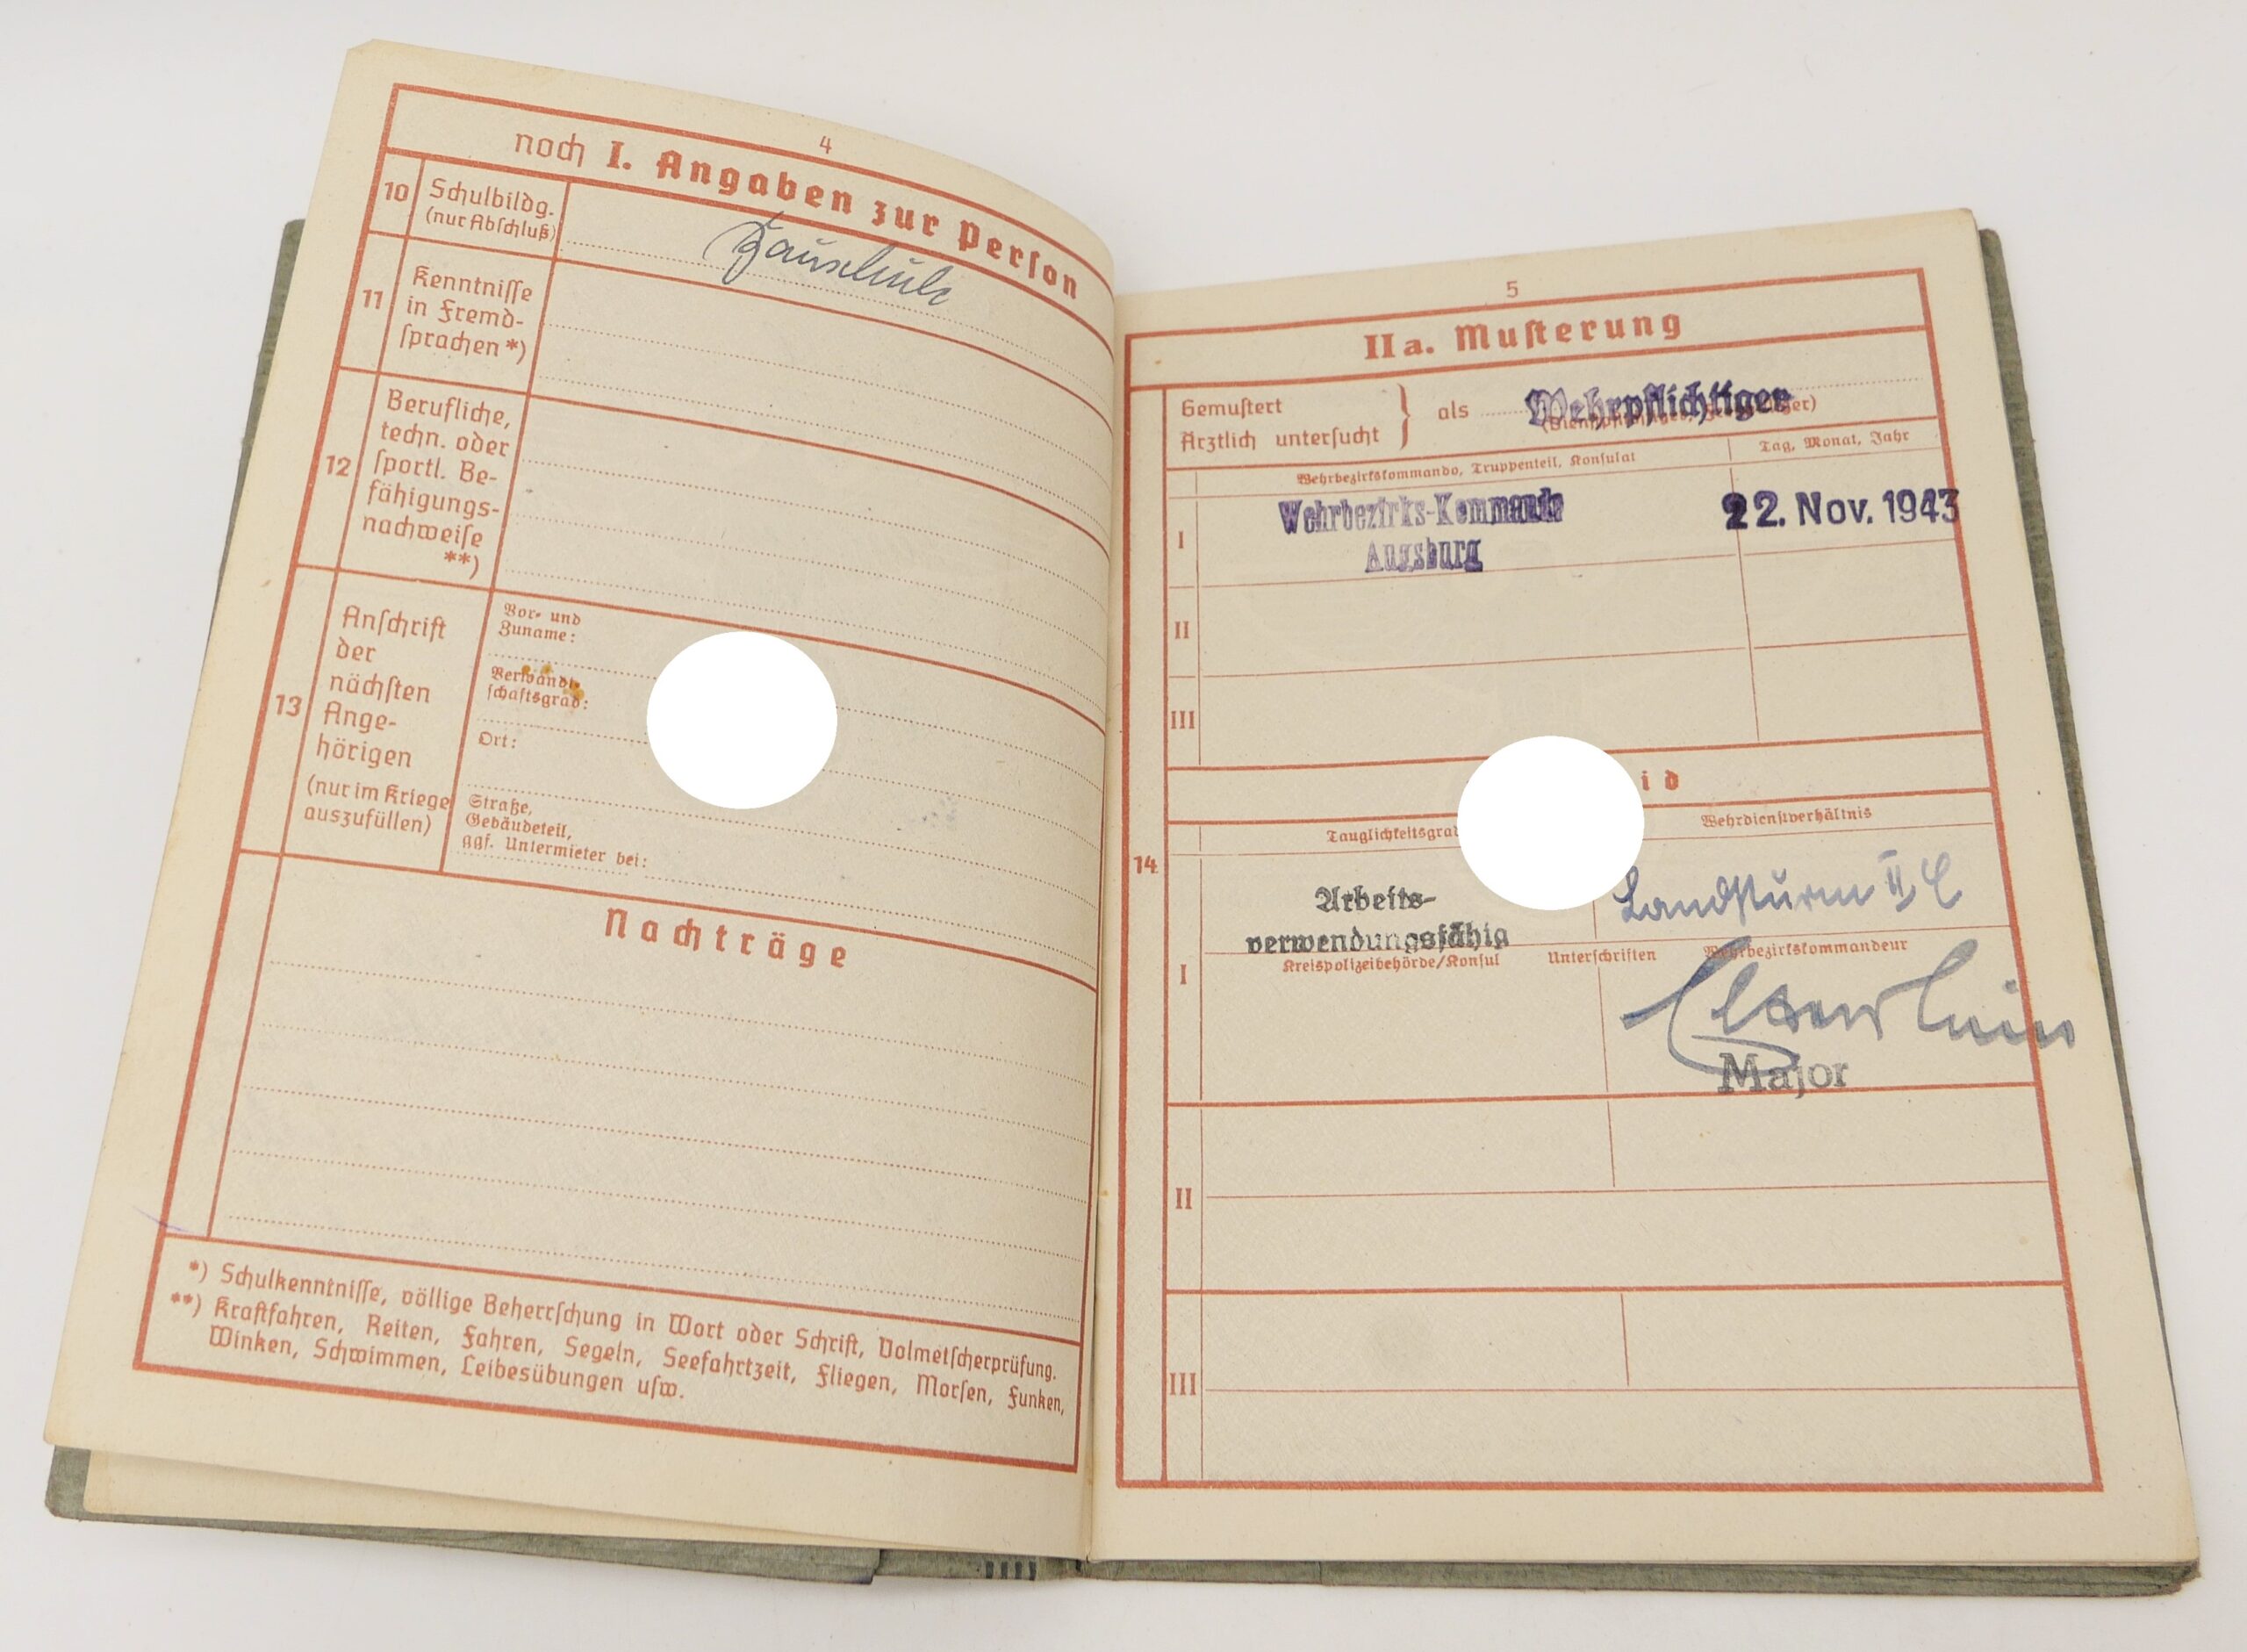 4
noch I. Angaben zur Person
10
Schulbildg.
(nur Abschluß)
11
Kenntnisse
in Fremd-
sprachen *)
12
Berufliche,
techn. oder
sportl. Be-
fähigungs-
nachweise
**)
13
Anschrift
der
nächsten
Ange-
hörigen
(nur im Kriege
auszufüllen)
Vor- und
Zuname:
Verwandt-
schaftsgrad:
Ort:
Straße,
Gebäudeteil,
ggf. Untermieter bei:
Nachträge
*) Schulkenntnisse, völlige Beherrschung in Wort oder Schrift, Dolmetscherprüfung.
**) Kraftfahren, Reiten, Fahren, Segeln, Seefahrtzeit, Fliegen, Morsen, Funken,
Winken, Schwimmen, Leibesübungen usw.
5
IIa. Musterung
Gemustert
Ärztlich untersucht
als Wehrpflichtiger
Wehrbezirkskommando, Truppenteil, Konsulat
Tag, Monat, Jahr
I
Wehrbezirks-Kommando
Augsburg
22. Nov. 1943
II
III
14
Tauglichkeitsgrad
Wehrdienstverhältnis
I
Arbeits-
verwendungsfähig
Landsturm II
Kreispolizeibehörde/Konsul
Unterschriften
Wehrbezirkskommandeur
Major
II
III